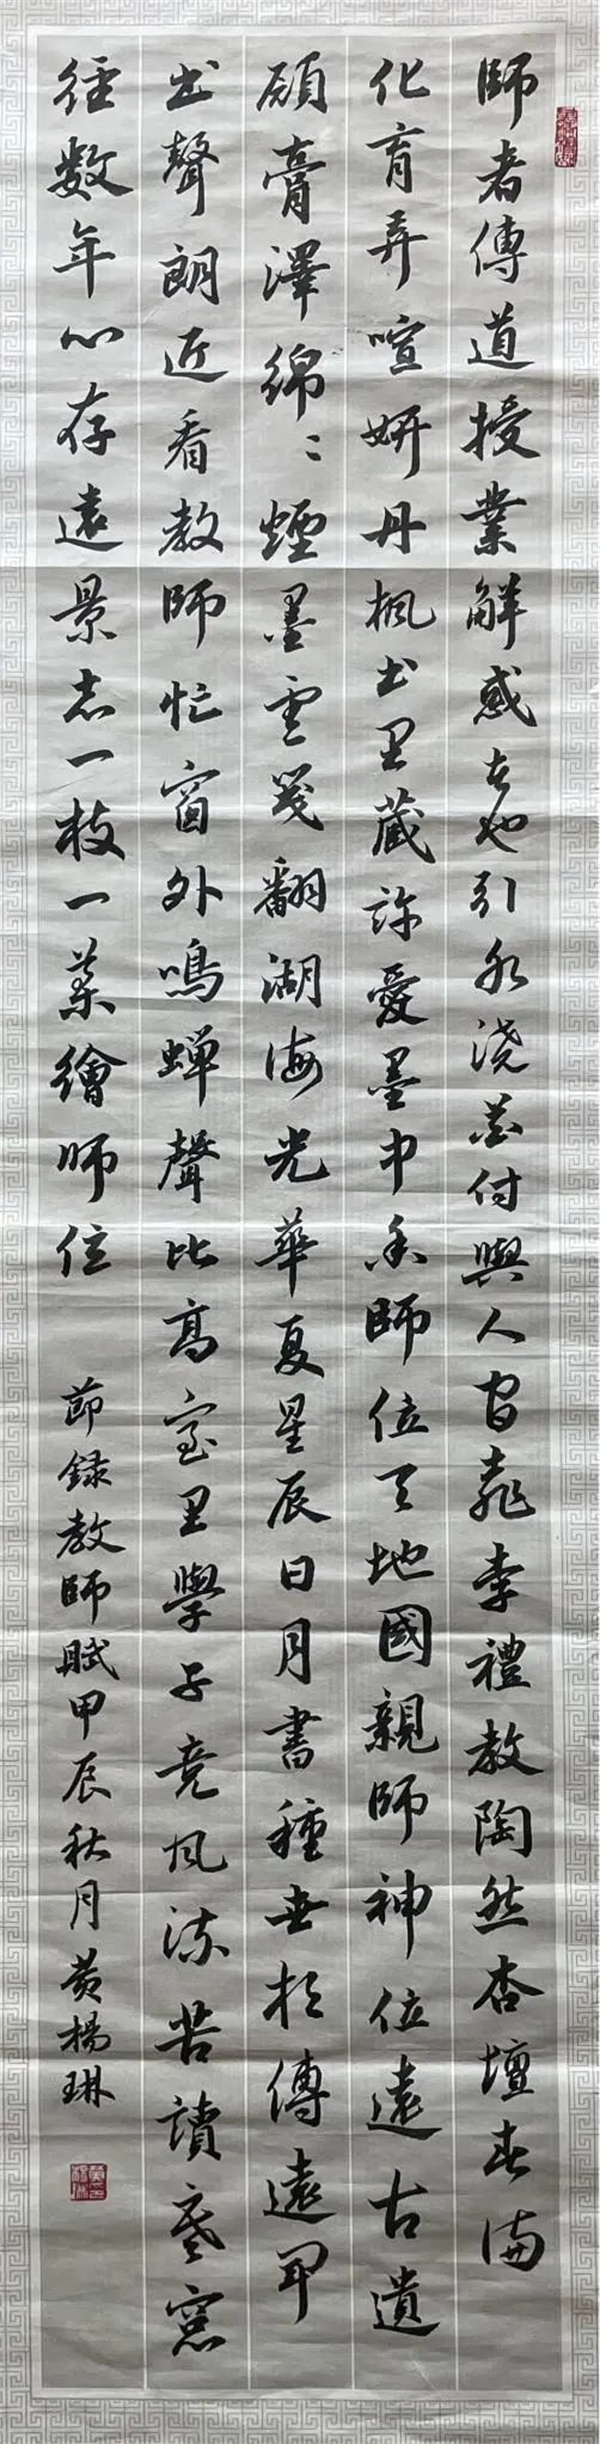 師者傳道授業解惑者也引水澆花付與人間桃李禮教陶然杏壇春滿
化育弄喧妍丹楓书里藏許愛墨中香師位天地國親師神位遠古遺
膏澤綿綿煙墨雲箋翻湖海光華夏星辰日月書種世相傳遠聞
书聲朗近看教師忙窗外鳴蟬聲比高室里學子竞风流苦讀寒窓
徑數年心存遠景志一枝一葉繪師位
節録教師賦甲辰秋月黄楊琳